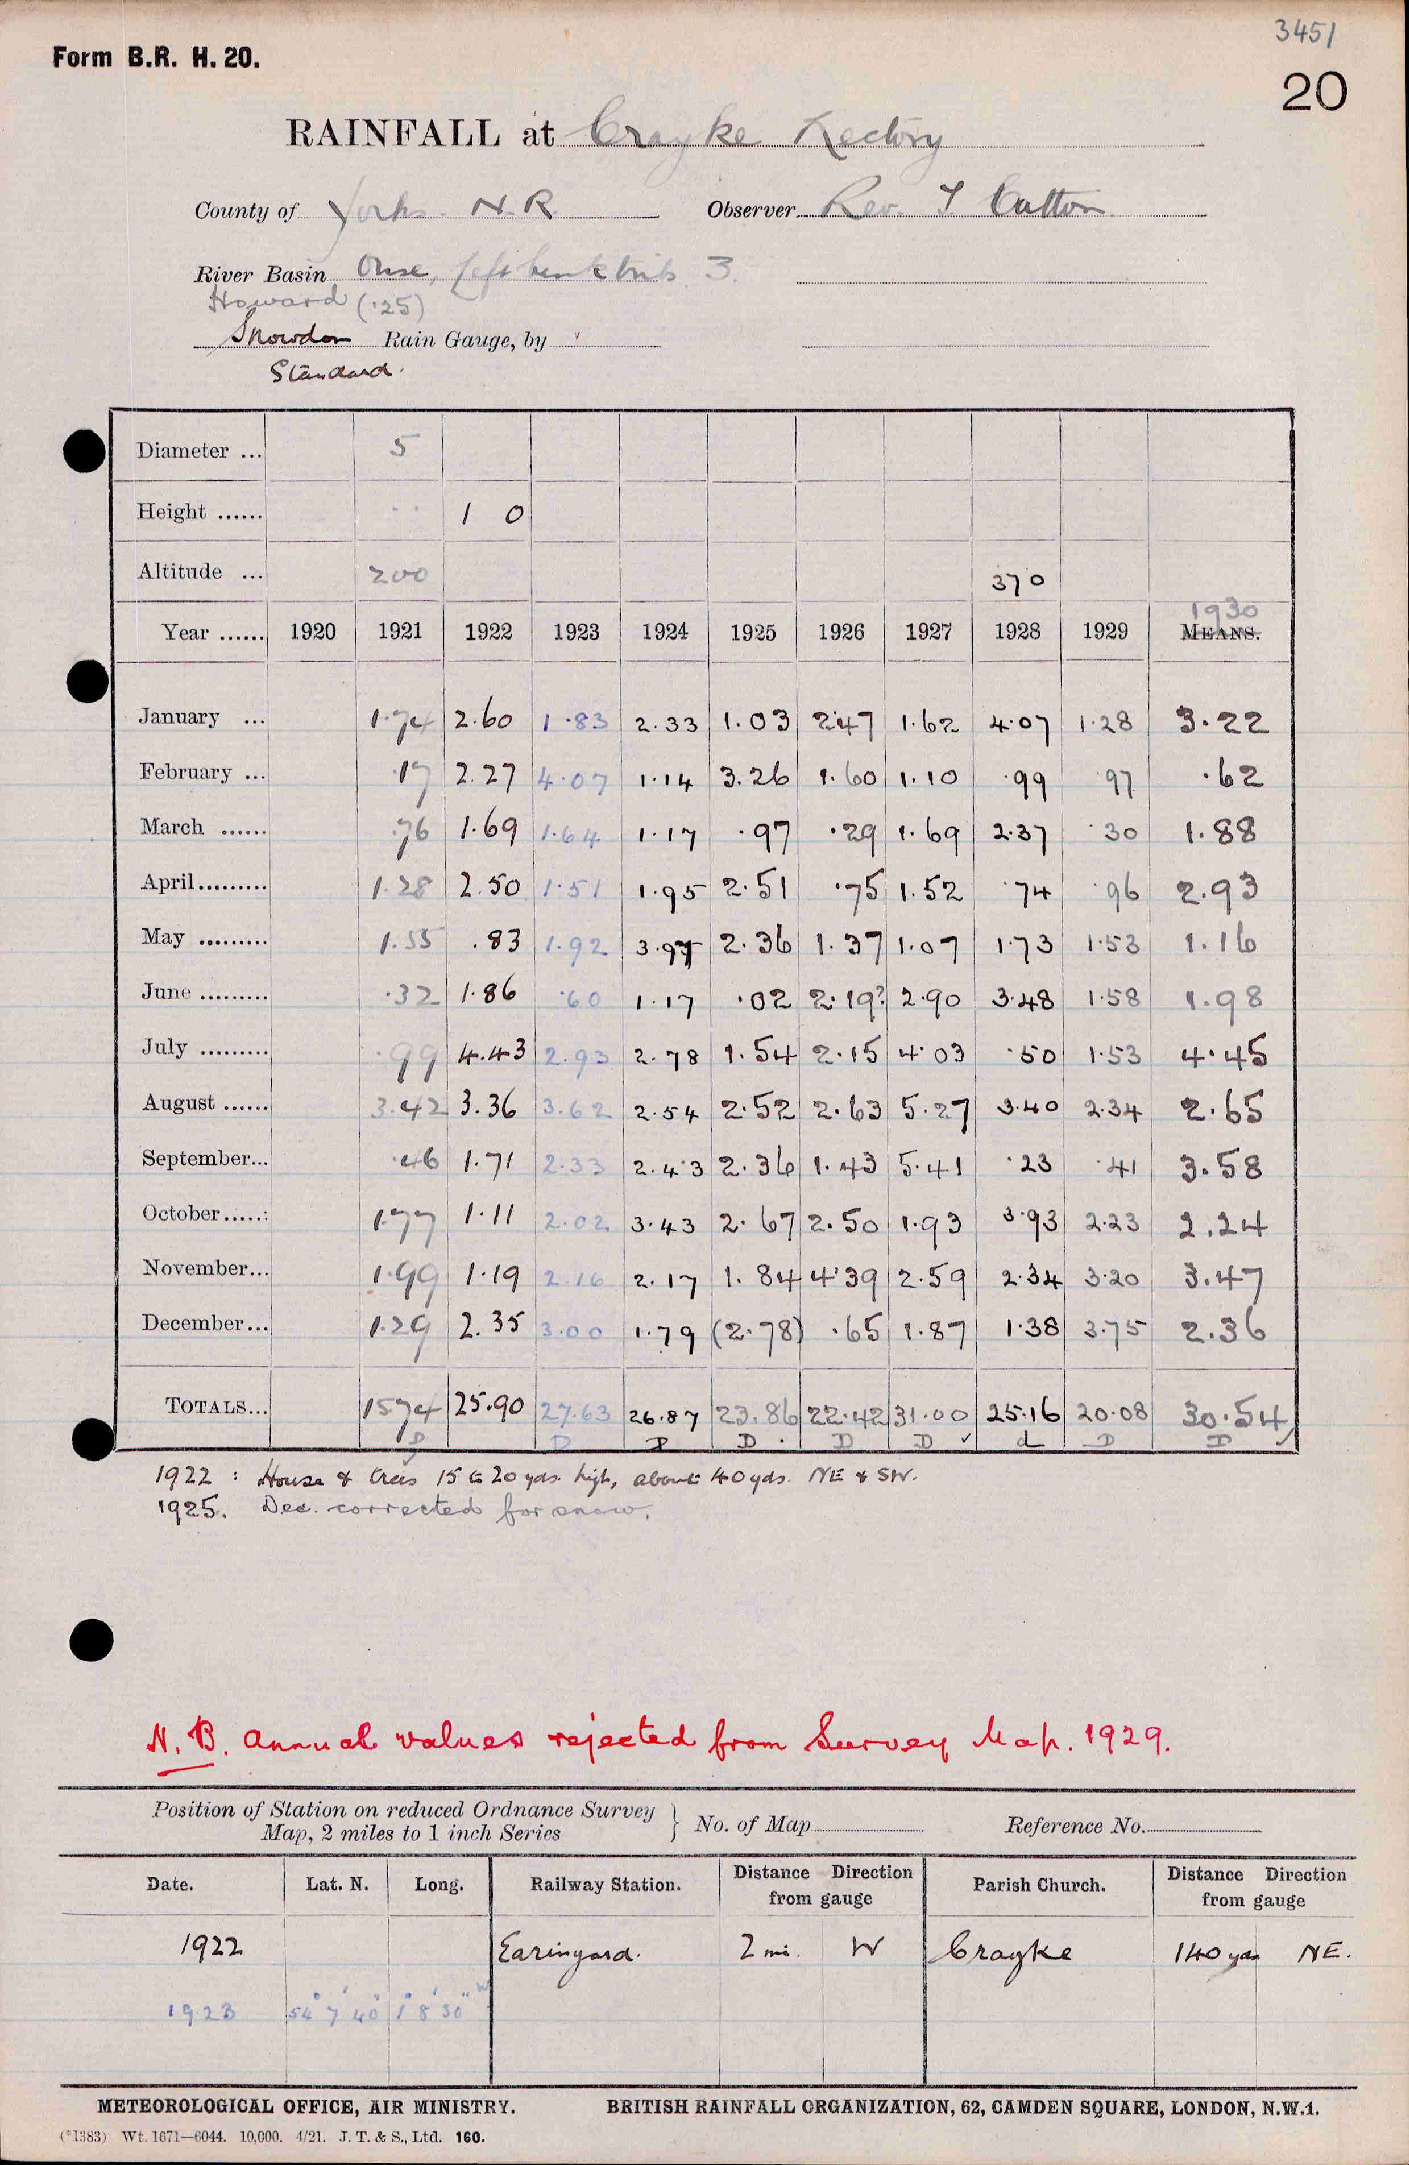 3451
Form B.R. H. 20.
20
RAINFALL at Crayke Rectory
County of Yorks. N.R. Observer Rev. T Cutton
River Basin Ouse, Left bank tribs 3.
Howard (.25)
Snowdon Rain Gauge, by
Standard.
Diameter ... 5
Height ...... 1 0
Altitude ... 200 370
1930
Year ...... 1920 1921 1922 1923 1924 1925 1926 1927 1928 1929 MEANS.
January ... 1.74 2.60 1.83 2.33 1.03 2.47 1.62 4.07 1.28 3.22
February ... .17 2.27 4.07 1.14 3.26 1.60 1.10 .99 .97 .62
March ...... .76 1.69 1.64 1.17 .97 .29 1.69 2.37 .30 1.88
April......... 1.28 2.50 1.51 1.95 2.51 .75 1.52 .74 .96 2.93
May ......... 1.55 .83 1.92 3.97 2.36 1.37 1.07 1.73 1.53 1.16
June ......... .32 1.86 .60 1.17 .02 2.19? 2.90 3.48 1.58 1.98
July ......... .99 4.43 2.93 2.78 1.54 2.15 4.03 .50 1.53 4.45
August ...... 3.42 3.36 3.62 2.54 2.52 2.63 5.27 3.40 2.34 2.65
September... .46 1.71 2.33 2.43 2.36 1.43 5.41 .23 .41 3.58
October.....: 1.77 1.11 2.02 3.43 2.67 2.50 1.93 3.93 2.23 2.24
November... 1.99 1.19 2.16 2.17 1.84 4.39 2.59 2.34 3.20 3.47
December... 1.29 2.35 3.00 1.79 (2.78) .65 1.87 1.38 3.75 2.36
TOTALS... 15.74 25.90 27.63 26.87 23.86 22.42 31.00 25.16 20.08 30.54
D D D D D D d D D
1922 : House & trees 15 to 20 yds. high, about 40 yds. NE & SW.
1925. Dec. corrected for snow.
N.B. Annual values rejected from Survey Map. 1929.
Position of Station on reduced Ordnance Survey
Map, 2 miles to 1 inch Series } No. of Map Reference No.
Date. Lat. N. Long. Railway Station. Distance Direction from gauge Parish Church. Distance Direction from gauge
1922 Earingyard. 2 mi. W Crayke 140 yds NE.
1923 54° 7' 40" 1° 8' 30" W
METEOROLOGICAL OFFICE, AIR MINISTRY. BRITISH RAINFALL ORGANIZATION, 62, CAMDEN SQUARE, LONDON, N.W.1.
(*1383) Wt. 1671—6044. 10,000. 4/21. J. T. & S., Ltd. 160.